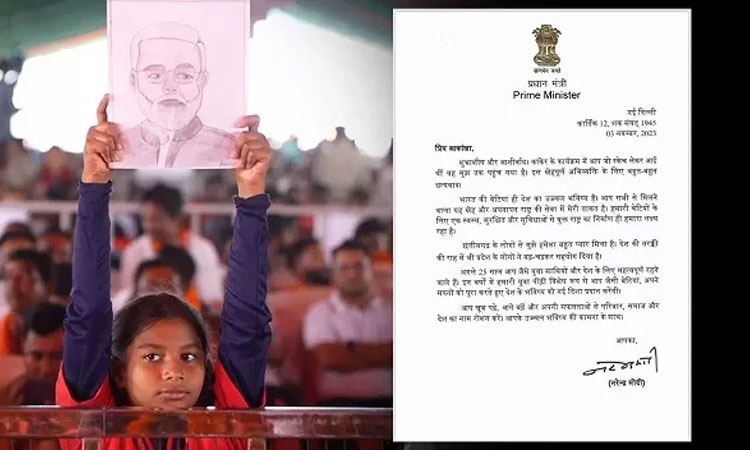 प्रधान मंत्री
Prime Minister
नई दिल्ली
कार्तिक 12, शक संवत् 1945
03 नवम्बर, 2023
प्रिय आकांक्षा,
शुभाशीष और आशीर्वाद। कांकेर के कार्यक्रम में आप जो स्केच लेकर आई
थीं वह मुझ तक पहुंच गया है। इस स्नेहपूर्ण अभिव्यक्ति के लिए बहुत-बहुत
धन्यवाद।
भारत की बेटियां ही देश का उज्ज्वल भविष्य हैं। आप सभी से मिलने
वाला यह स्नेह और अपनापन राष्ट्र की सेवा में मेरी ताकत है। हमारी बेटियों के
लिए एक स्वस्थ, सुरक्षित और सुविधाओं से युक्त राष्ट्र का निर्माण ही हमारा लक्ष्य
रहा है।
छत्तीसगढ़ के लोगों से मुझे हमेशा बहुत प्यार मिला है। देश की तरक्की
की राह में भी प्रदेश के लोगों ने बढ़-चढ़कर सहयोग दिया है।
अगले 25 साल आप जैसे युवा साथियों और देश के लिए महत्वपूर्ण रहने
वाले हैं। इन वर्षों में हमारी युवा पीढ़ी विशेष रूप से आप जैसी बेटियां, अपने
सपनों को पूरा करते हुए देश के भविष्य को नई दिशा प्रदान करेंगी।
आप खूब पढ़ें, आगे बढ़ें और अपनी सफलताओं से परिवार, समाज और
देश का नाम रोशन करें। आपके उज्ज्वल भविष्य की कामना के साथ।
आपका,
(नरेन्द्र मोदी)